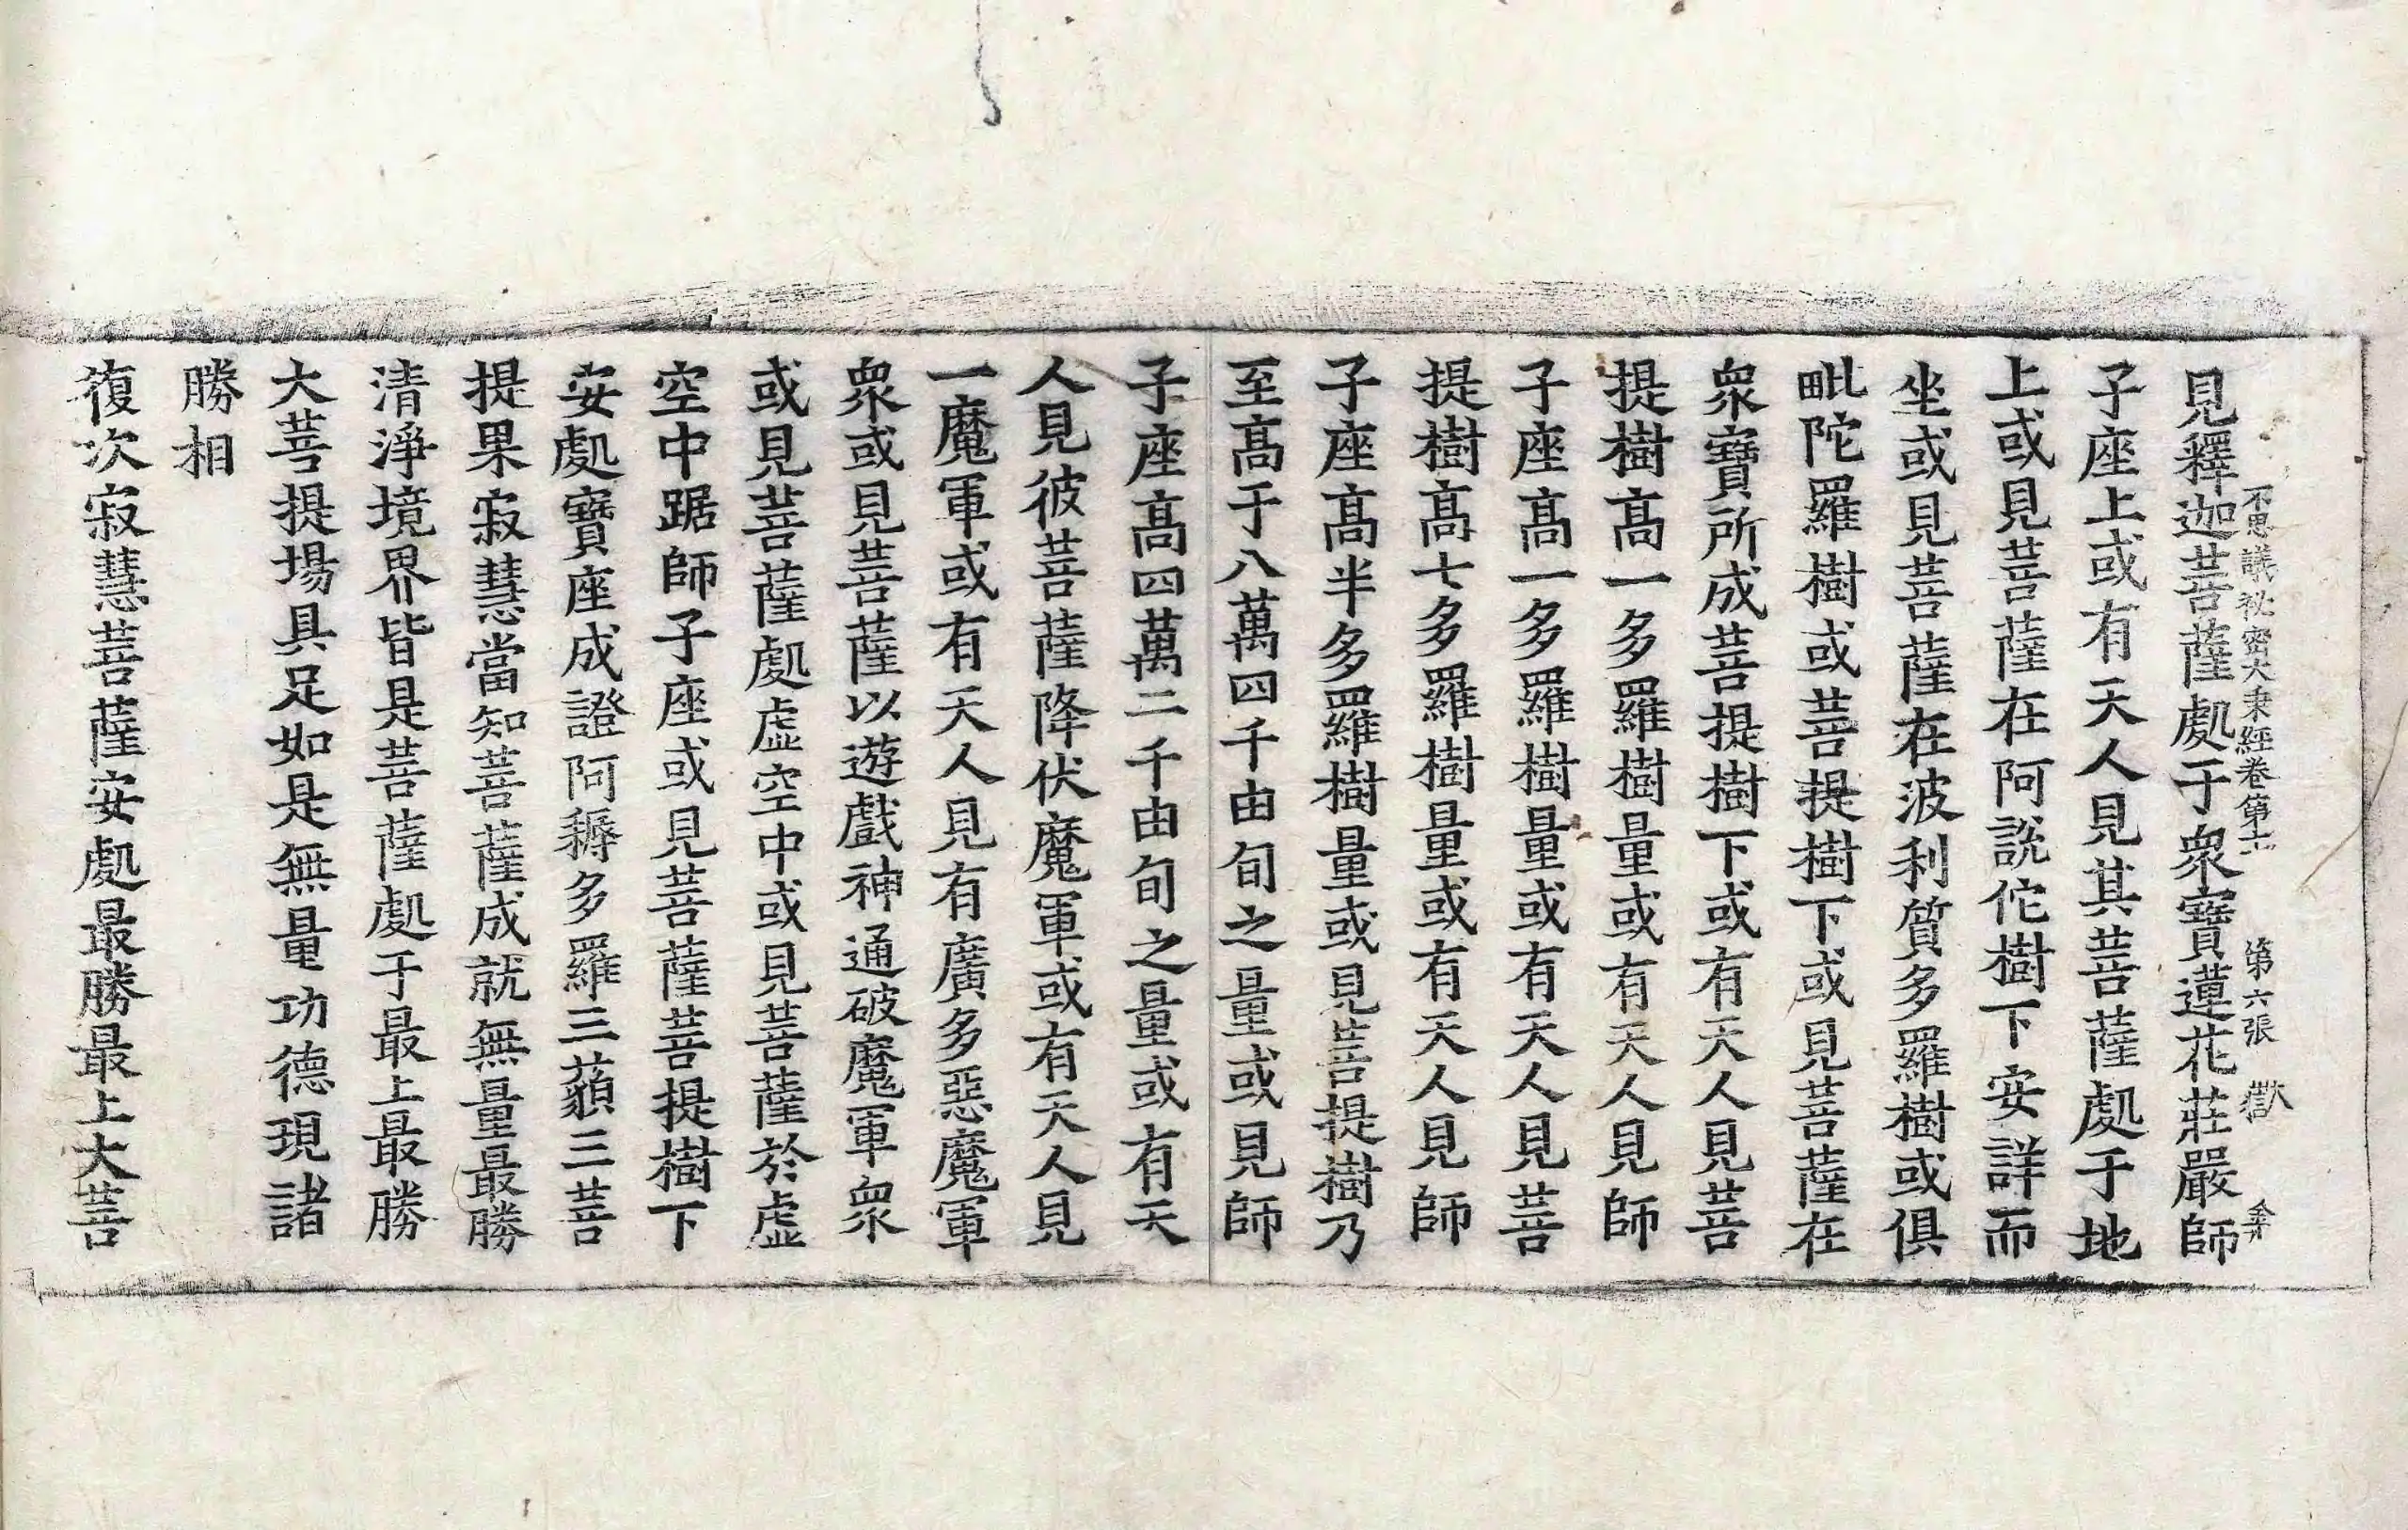 見釋迦菩薩處于衆寶蓮花莊嚴師
不思議祕密大乗經卷第十二 第六張 獻
子座上或有天人見其菩薩處于地
上或見菩薩在阿說佗樹下安詳而
坐或見菩薩在波利質多羅樹或俱
毗陀羅樹或菩提樹下或見菩薩在
衆寶所成菩提樹下或有天人見菩
提樹髙一多羅樹量或有天人見師
子座髙一多羅樹量或有天人見菩
提樹髙七多羅樹量或有天人見師
子座髙半多羅樹量或見菩提樹乃
至髙于八萬四千由旬之量或見師
子座髙四萬二千由旬之量或有天
人見彼菩薩降伏魔軍或有天人見
一魔軍或有天人見有廣多惡魔軍
衆或見菩薩以遊戲神通破魔軍衆
或見菩薩處虛空中或見菩薩於虛
空中踞師子座或見菩薩菩提樹下
安處寶座成證阿耨多羅三藐三菩
提果寂慧當知菩薩成就無量最勝
清淨境界皆是菩薩處于最上最勝
大菩提場具足如是無量功德現諸
勝相
復次寂慧菩薩安處最勝最上大菩